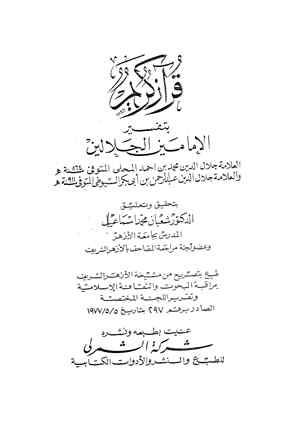 قرآن كريم
بتفسير
الإمامين الجلالين
العلامة جلال الدين محمد بن احمد المحلى المتوفى سنة ه
والعلامة جلال الدين عبد الرحمن بن أبى بكر السيوطى المتوفى سنة ه
بتحقيق وتعليق
الدكتور شعبان محمد اسماعيل
المدرس بجامعة الأزهر
وعضو لجنة مراجعة المصاحف بالأزهر الشريف
طبع بتصريح من مشيخة الأزهر الشريف
مراقبة البحوث والثقافة الإسلامية
وتقرير اللجنة المختصة
الصادر برقم ٢٩٧ بتاريخ ١٩٧٧/٥/٥
عنيت بطبعه ونشره
شركة الشمرلى
للطبع والنشر والأدوات الكتابية